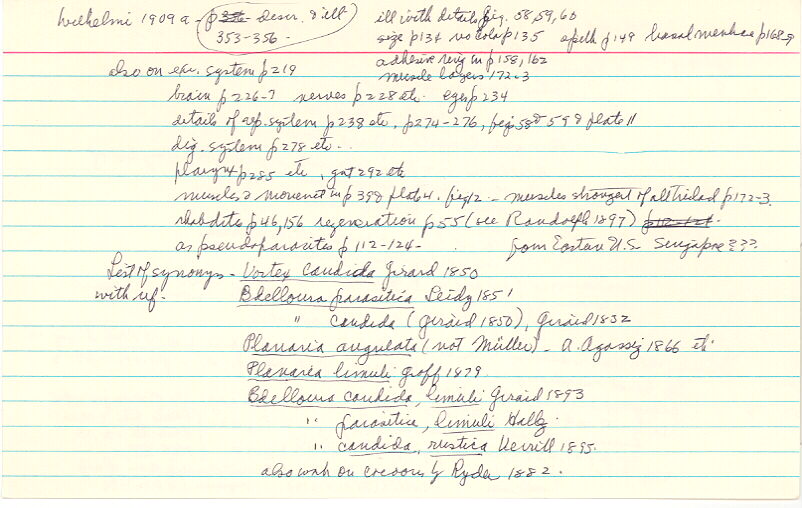 Wilhelmi 1909a - descr. & ill 353-356.
ill with details fig. 58, 59, 60
size p134 no color p135 epith p149 basal membrane p168-9
adhesive ring in p158, 162
muscle layers 172-3
also on exc. system p219
brain p226-7 nerves p228 etc. eyes p234
details of rep. system p238 etc. p274-276, figs 58 & 59 & plate 11
dig. system p278 etc.
pharynx p285 etc, gut 292 etc
muscles & movement in p398 plate 4. fig 12 - muscles strongest of all triclad p172-3.
rhabdite p46, 156 regeneration p55 (see Randolph 1897) p112-121.
as pseudoparasites p112-124- from Eastern U.S. Singapore???
List of synonyms - Vortex candida Girard 1850
with ref. Bdelloura parasitica Leidy 1851
" candida (Girard 1850), Girard 1852
Planaria angulata (not Müller) - A. Agassiz 1866 etc
Planaria limuli Graff 1879
Bdelloura candida, limuli Girard 1893
" parasitica, limuli Hallez
" candida, rustica Verrill 1895.
also work on cocoons by Ryder 1882.